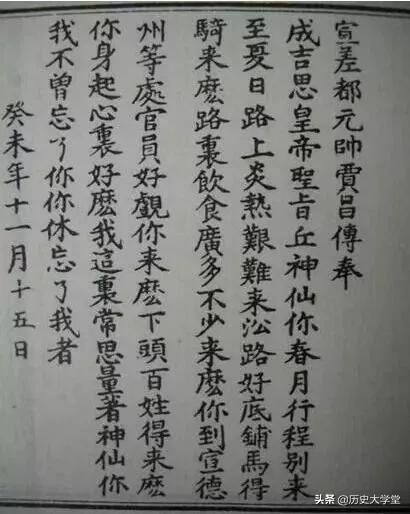 宣差都元帥賈昌傳奉
成吉思皇帝聖旨丘神仙你春月行程別来
至夏日路上炎熱艱難来㳂路好底鋪馬得
騎来麽路裏飲食廣多不少来麽你到宣德
州等處官員好覷你来麽下頭百姓得来麽
你身起心裏好麽我這裏常思量著神仙你
我不曾忘了你你休忘了我者
癸未年十一月十五日
头条 @历史大学堂